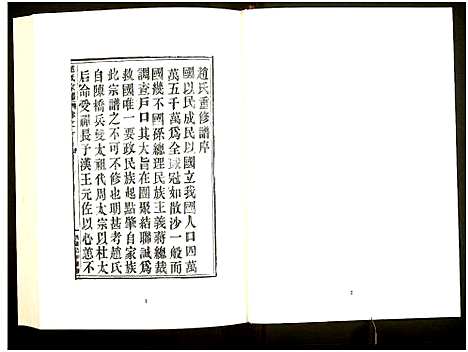 趙氏重修譜序
國以民成民以國立我國人口四萬
萬五千萬爲全球冠如散沙一般而
國幾不國孫總理民族主義蔣總裁
調查戶口其大旨在團聚結聯誠爲
救國唯一要政民族起點肇自家族
此宗譜之不可不修也明甚考趙氏
自陳橋兵變太祖代周太宗以杜太
后命受禪長子漢王元佐以心恙不
1
2